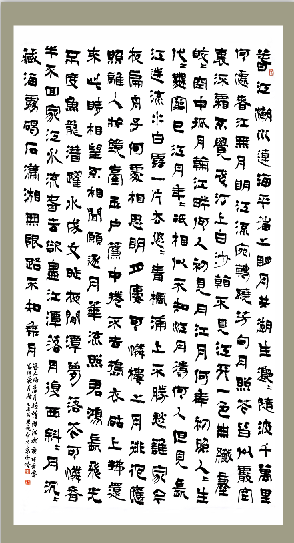 春江潮水連海平海上明月共潮生灩〻隨波千萬里
何處春江無月明江流宛轉繞芳甸月照花林皆似霰空
裏流霜不覺飛汀上白沙看不見江天一色無纖塵
皎〻空中孤月輪江畔何人初見月江月何年初照人〻生
代〻無窮已江月年〻祇相似不知江月待何人但見長
江送流水白雲一片去悠〻青楓浦上不勝愁誰家今
夜扁舟子何處相思明月樓可憐樓上月徘徊應
照離人妝鏡臺玉戶簾中捲不去擣衣砧上拂還
來此時相望不相聞願逐月華流照君鴻雁長飛光
不度魚龍潛躍水成文昨夜閒潭夢落花可憐春
半不回家江水流春去欲盡江潭落月復西斜〻月沉〻
藏海霧碣石瀟湘無限路不知乘月